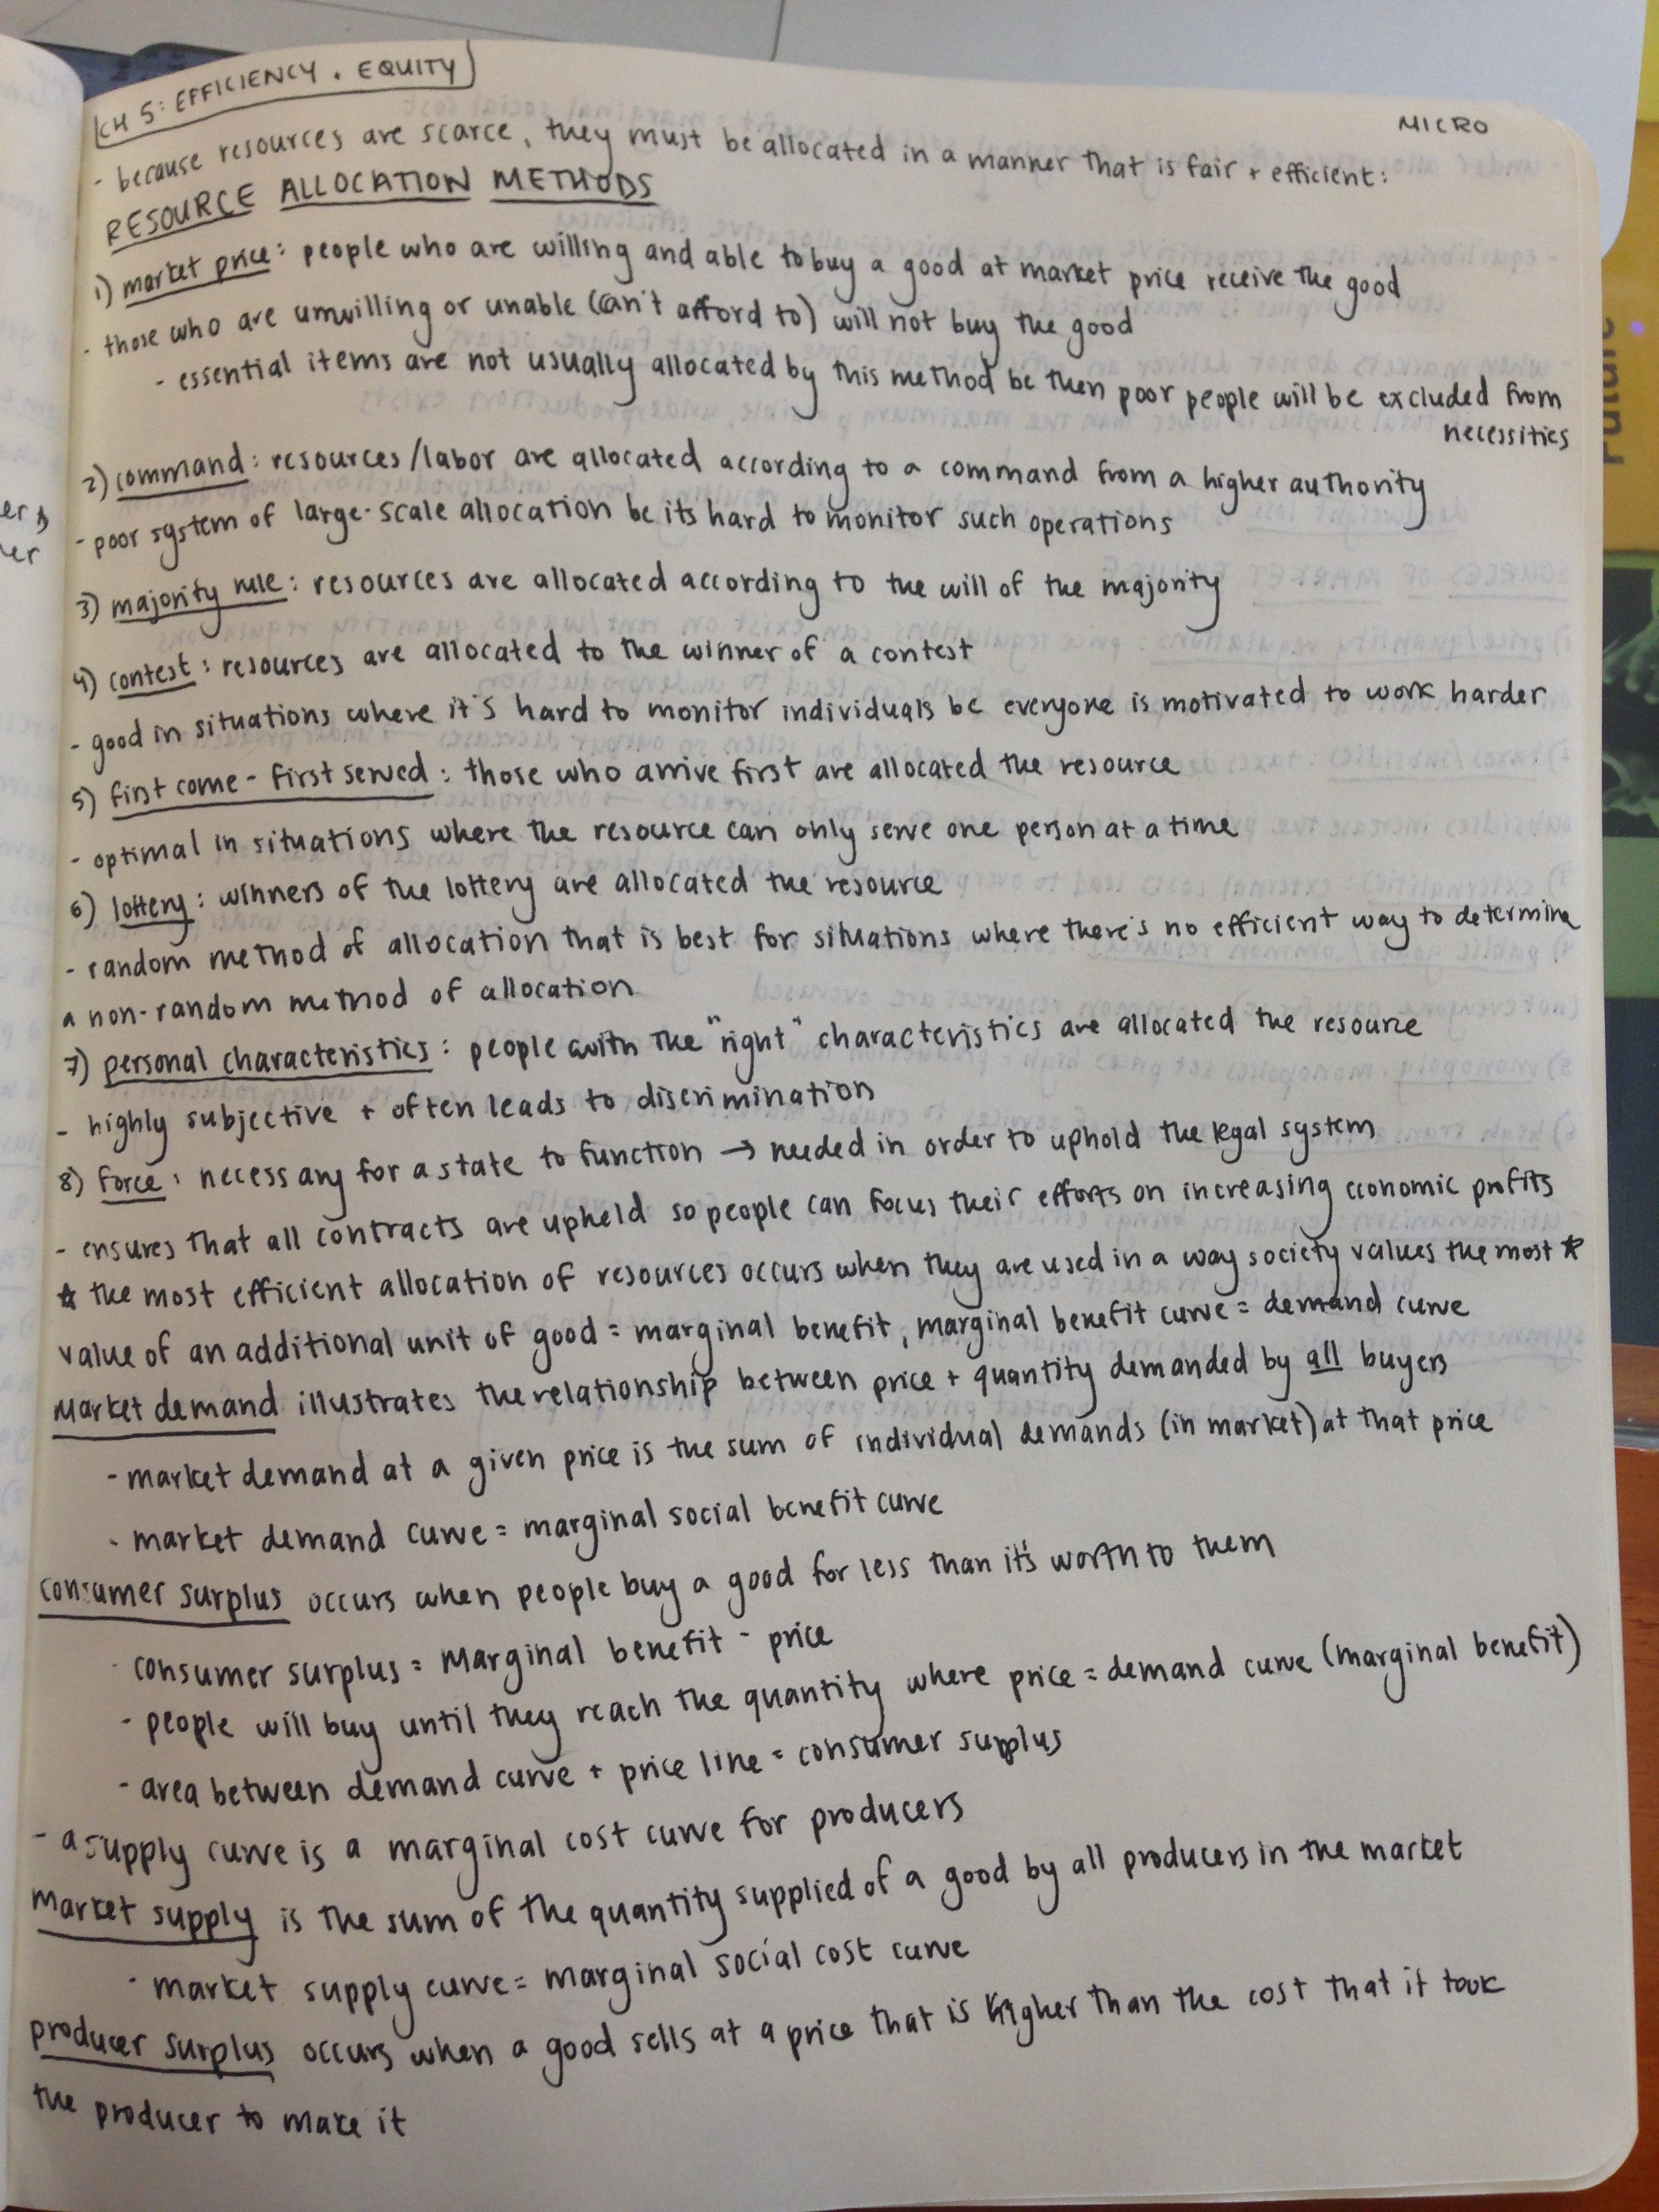 CH 5: EFFICIENCY + EQUITY
MICRO
- because resources are scarce, they must be allocated in a manner that is fair + efficient:
RESOURCE ALLOCATION METHODS
1) market price: people who are willing and able to buy a good at market price receive the good
- those who are unwilling or unable (can't afford to) will not buy the good
- essential items are not usually allocated by this method bc then poor people will be excluded from
necessities
2) command: resources/labor are allocated according to a command from a higher authority
- poor system of large-scale allocation bc its hard to monitor such operations
3) majority rule: resources are allocated according to the will of the majority
4) contest: resources are allocated to the winner of a contest
- good in situations where it's hard to monitor individuals bc everyone is motivated to work harder
5) first come-first served: those who arrive first are allocated the resource
- optimal in situations where the resource can only serve one person at a time
6) lottery: winners of the lottery are allocated the resource
- random method of allocation that is best for situations where there's no efficient way to determine
a non-random method of allocation
7) personal characteristics: people with the "right" characteristics are allocated the resource
- highly subjective + often leads to discrimination
8) force: necessary for a state to function → needed in order to uphold the legal system
- ensures that all contracts are upheld so people can focus their efforts on increasing economic profits
☆ the most efficient allocation of resources occurs when they are used in a way society values the most ☆
value of an additional unit of good = marginal benefit, marginal benefit curve = demand curve
Market demand illustrates the relationship between price + quantity demanded by all buyers
- market demand at a given price is the sum of individual demands (in market) at that price
- market demand curve = marginal social benefit curve
consumer surplus occurs when people buy a good for less than it's worth to them
- consumer surplus = Marginal benefit - price
- people will buy until they reach the quantity where price = demand curve (marginal benefit)
- area between demand curve + price line = consumer surplus
- a supply curve is a marginal cost curve for producers
Market supply is the sum of the quantity supplied of a good by all producers in the market
- market supply curve = marginal social cost curve
producer surplus occurs when a good sells at a price that is higher than the cost that it took
the producer to make it
er
Future